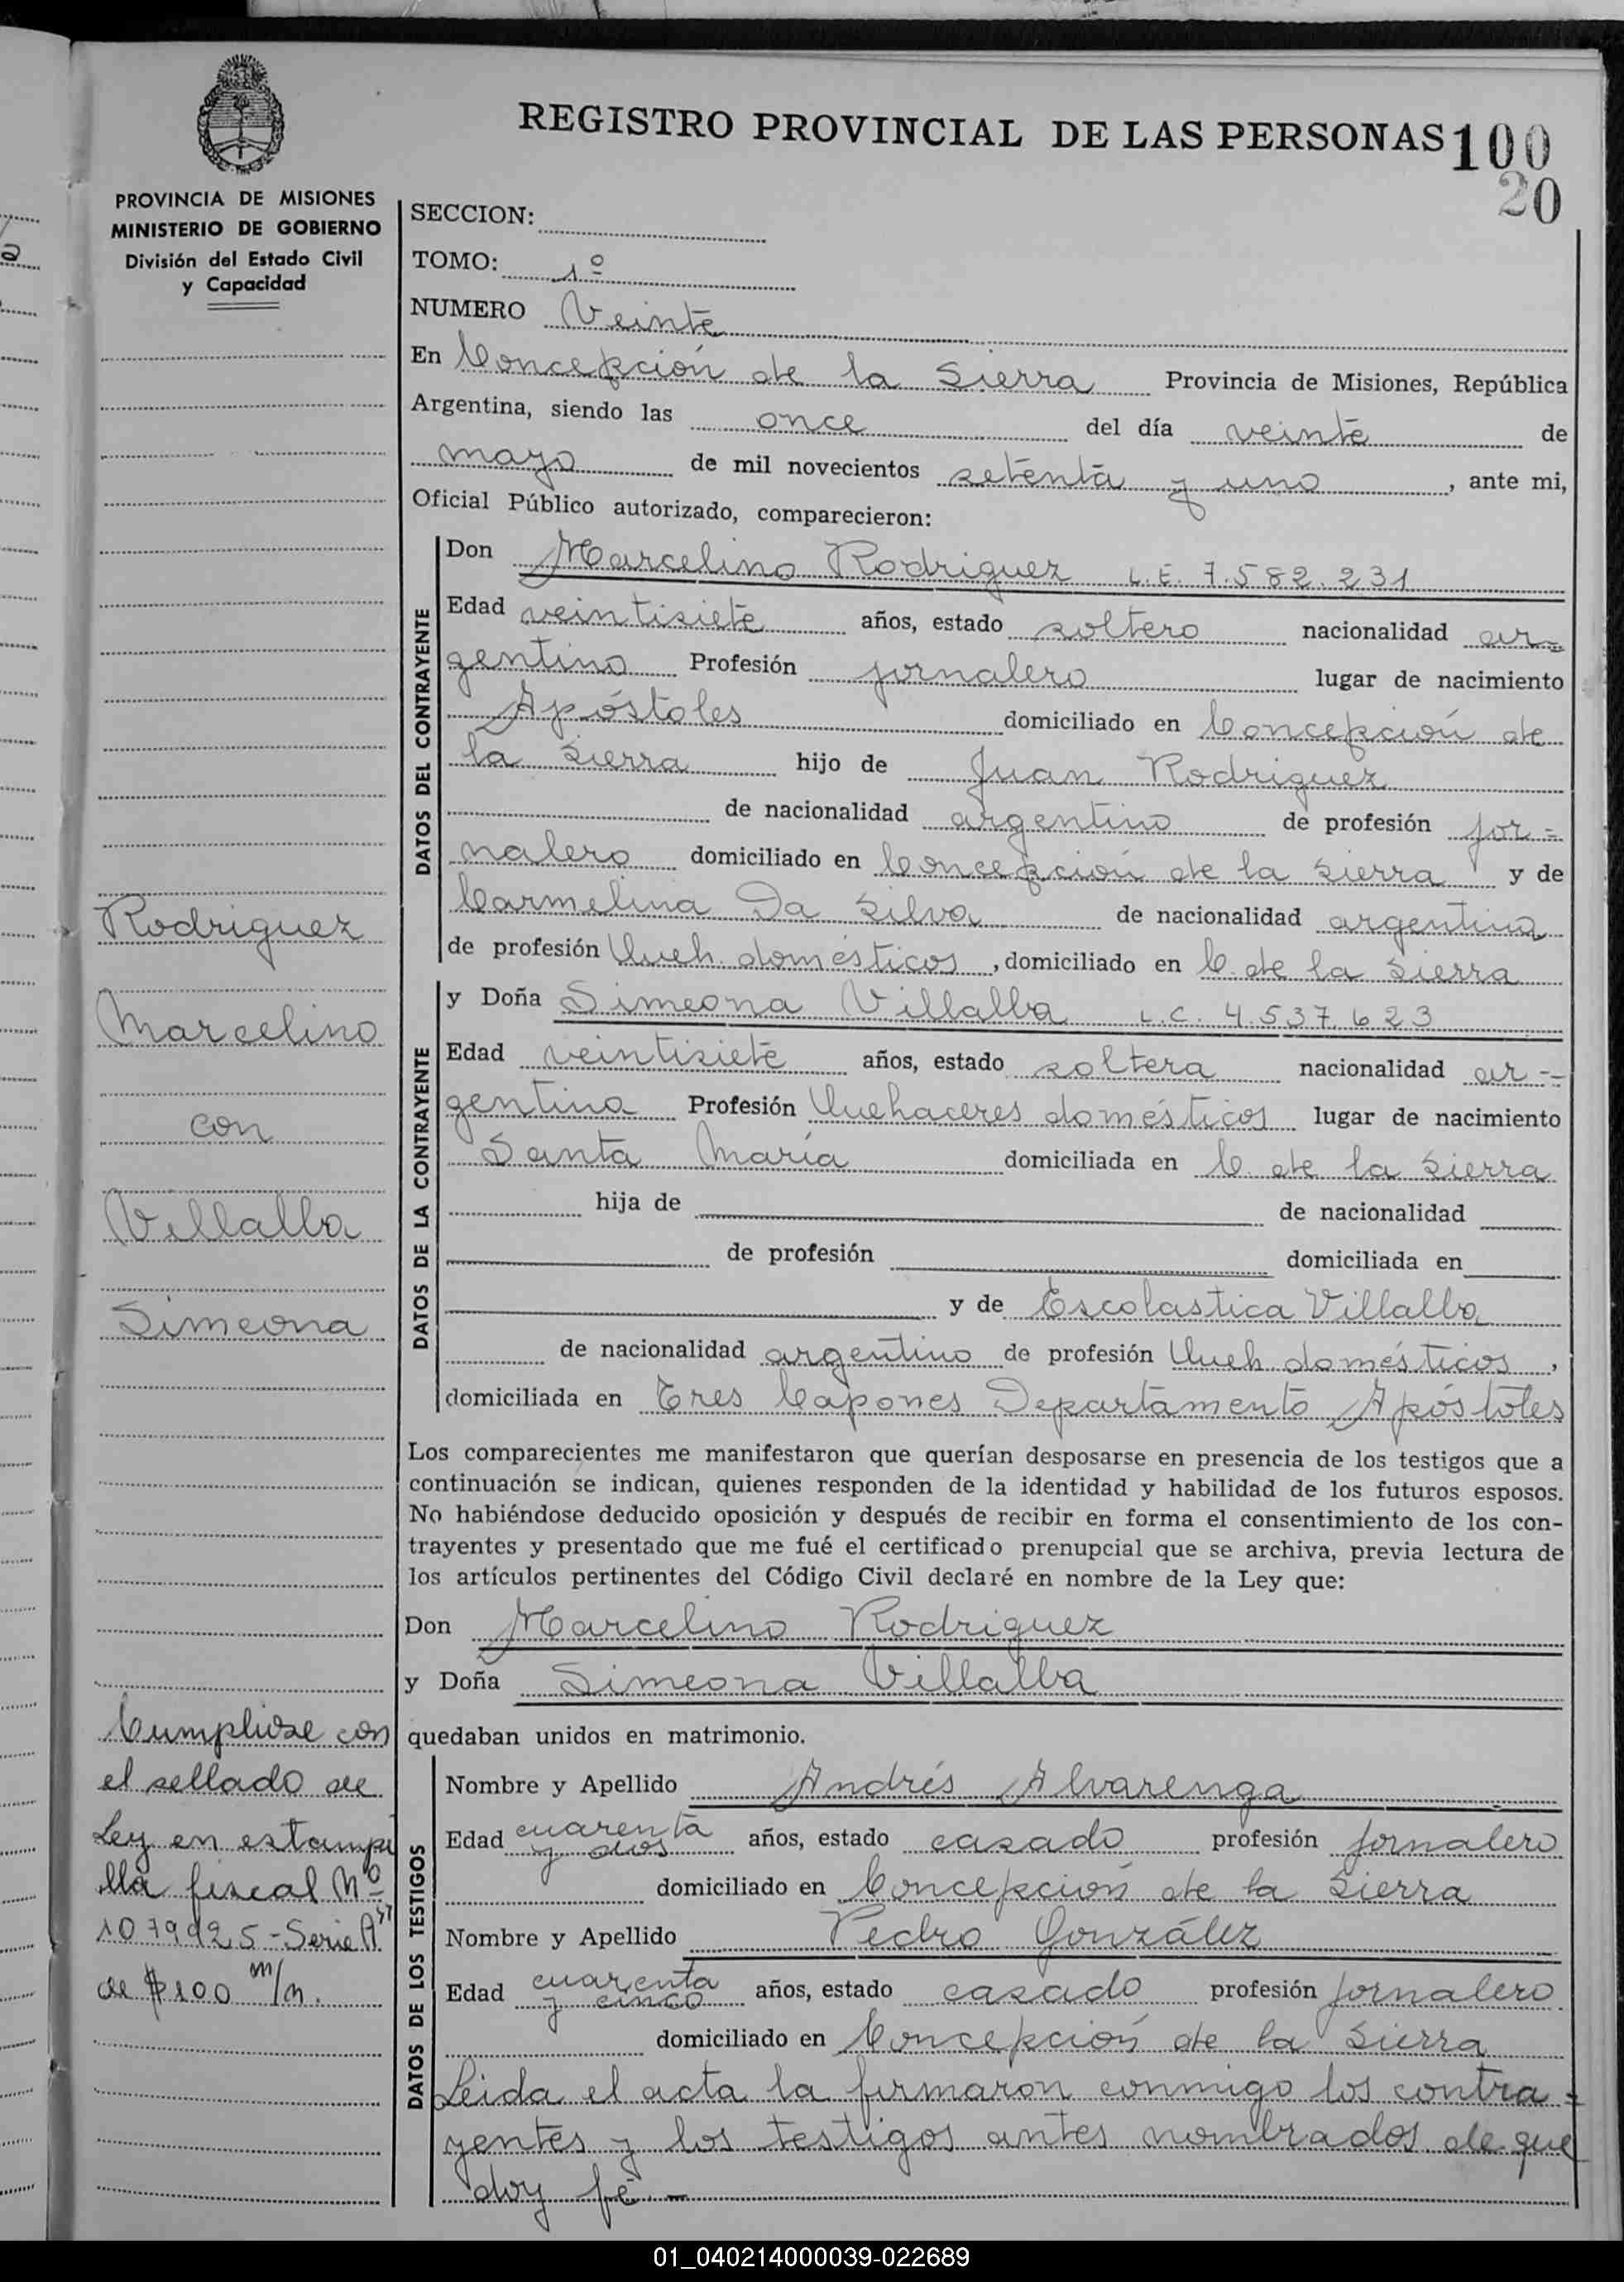 REGISTRO PROVINCIAL DE LAS PERSONAS 100
20
PROVINCIA DE MISIONES
MINISTERIO DE GOBIERNO
División del Estado Civil
y Capacidad
SECCION:
TOMO: 1º
NUMERO Veinte
En Concepción de la Sierra Provincia de Misiones, República
Argentina, siendo las once del día veinte de
mayo de mil novecientos setenta y uno, ante mi,
Oficial Público autorizado, comparecieron:
DATOS DEL CONTRAYENTE
Don Marcelino Rodriguez L.E. 7.582.231
Edad veintisiete años, estado soltero nacionalidad ar=
gentino Profesión jornalero lugar de nacimiento
Apóstoles domiciliado en Concepción de
la Sierra hijo de Juan Rodriguez
de nacionalidad argentino de profesión jor=
nalero domiciliado en Concepción de la Sierra y de
Carmelina Da Silva de nacionalidad argentina
de profesión Queh. domésticos, domiciliado en C. de la Sierra
DATOS DE LA CONTRAYENTE
y Doña Simeona Villalba L.C. 4.537.623
Edad veintisiete años, estado soltera nacionalidad ar=
gentina Profesión Quehaceres domésticos lugar de nacimiento
Santa María domiciliada en C. de la Sierra
hija de de nacionalidad
de profesión domiciliada en
y de Escolastica Villalba
de nacionalidad argentino de profesión Queh. domésticos,
domiciliada en Tres Capones Departamento Apóstoles
Los comparecientes me manifestaron que querían desposarse en presencia de los testigos que a
continuación se indican, quienes responden de la identidad y habilidad de los futuros esposos.
No habiéndose deducido oposición y después de recibir en forma el consentimiento de los con-
trayentes y presentado que me fué el certificado prenupcial que se archiva, previa lectura de
los artículos pertinentes del Código Civil declaré en nombre de la Ley que:
Don Marcelino Rodriguez
y Doña Simeona Villalba
quedaban unidos en matrimonio.
DATOS DE LOS TESTIGOS
Nombre y Apellido Andrés Alvarenga
Edad cuarenta y dos años, estado casado profesión jornalero
domiciliado en Concepción de la Sierra
Nombre y Apellido Pedro González
Edad cuarenta y cinco años, estado casado profesión jornalero
domiciliado en Concepción de la Sierra
Leida el acta la firmaron conmigo los contra=
yentes y los testigos antes nombrados de que
doy fé.-
Rodriguez
Marcelino
con
Villalba
Simeona
Cumplióse con
el sellado de
Ley en estampi
lla fiscal Nº
1079925-Serie "A"
de $100 m/n.
01_040214000039-022689